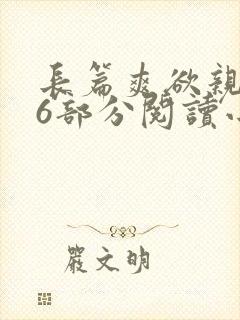 長篇爽欲親
6部分閱讀
嚴文明